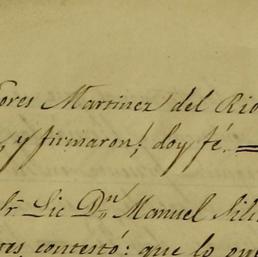 ores Martinez del Rio
y firmaron, doy fé.
Sr. Lic Dn. Manuel Sili
tes contestó: que lo